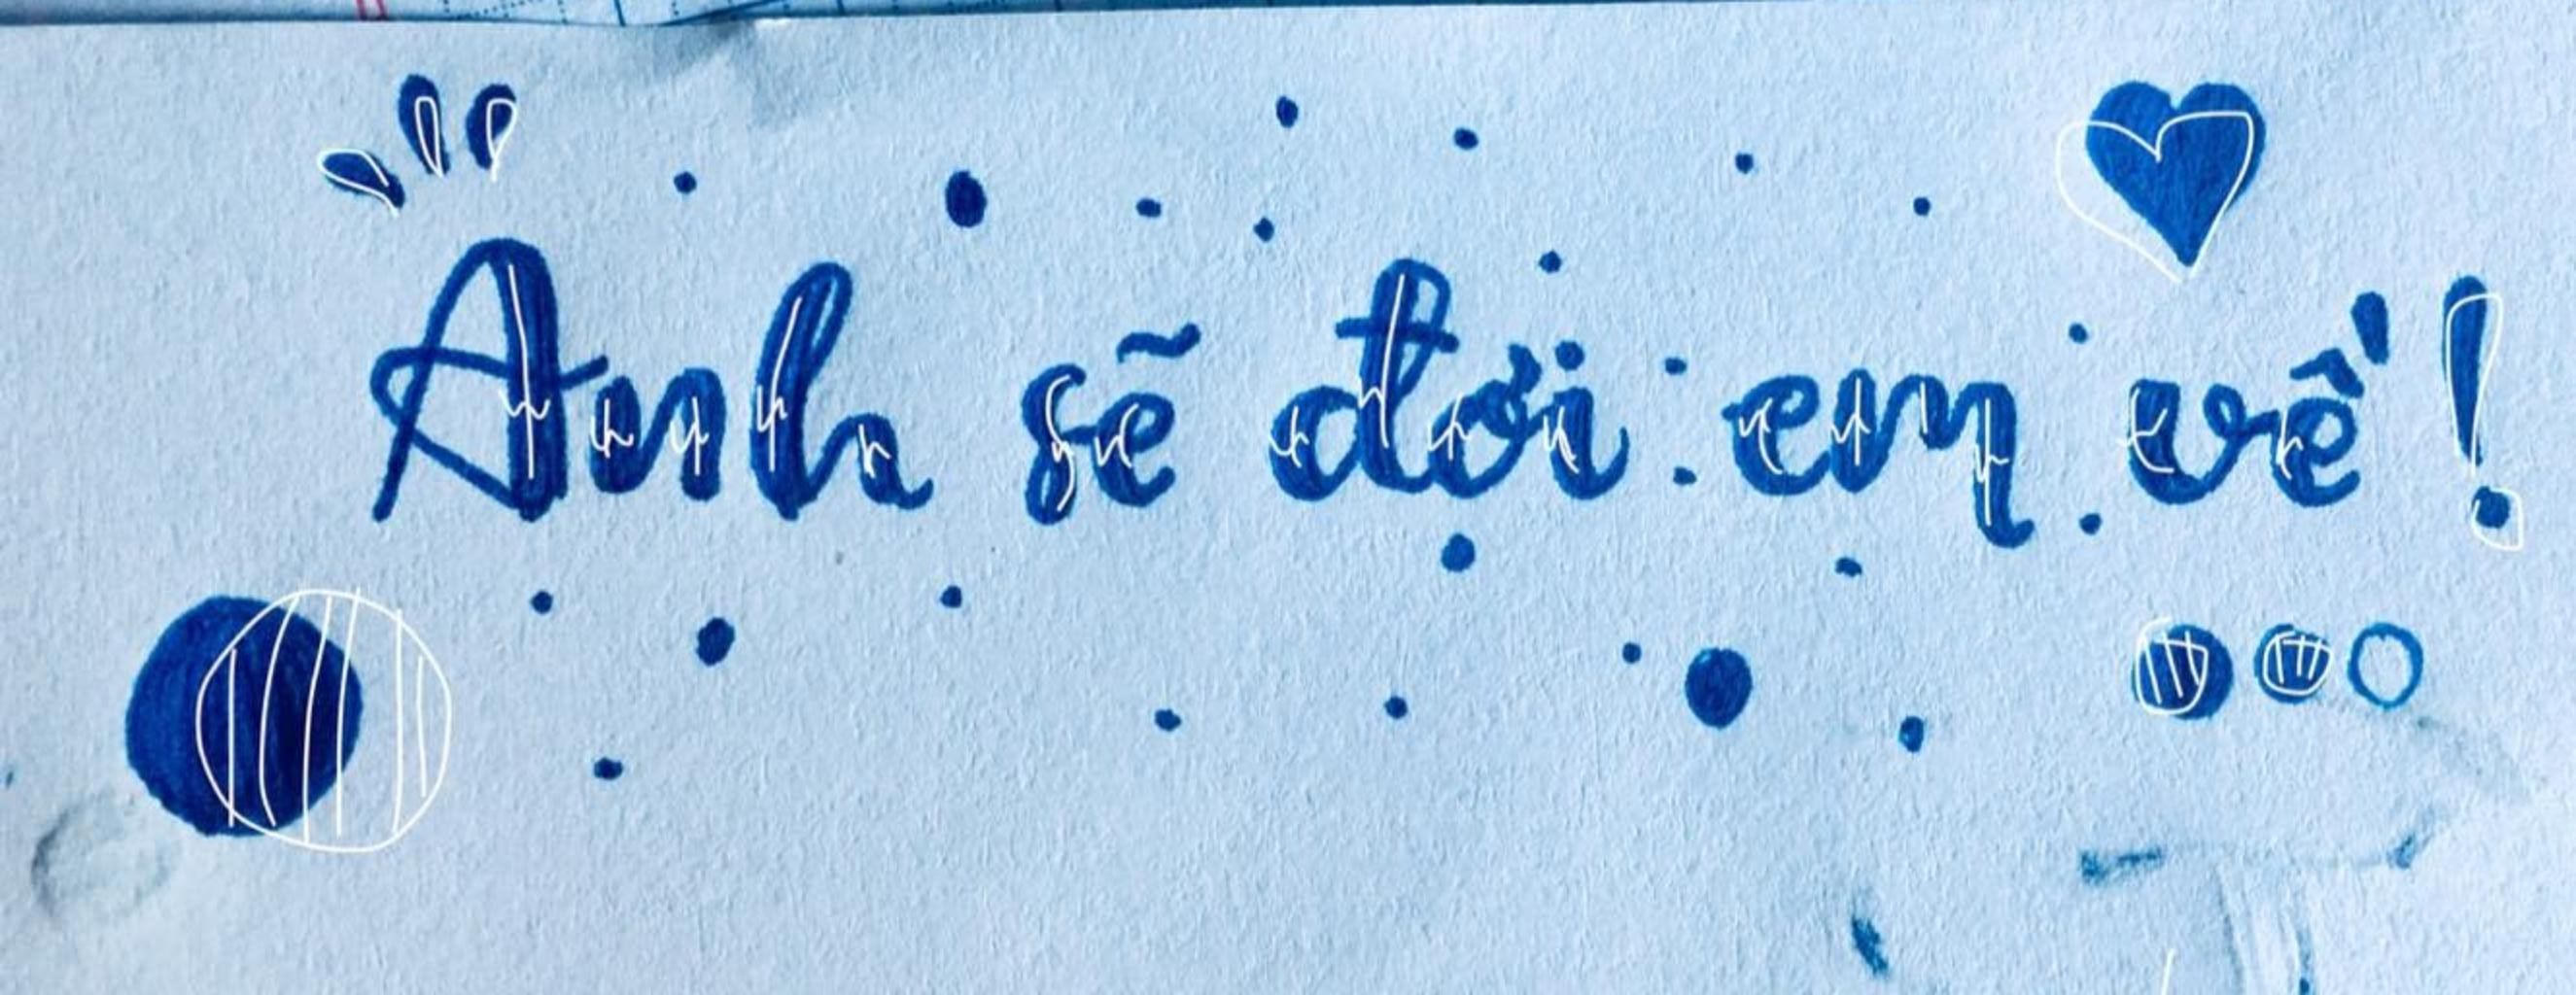 Anh sẽ đợi em về !